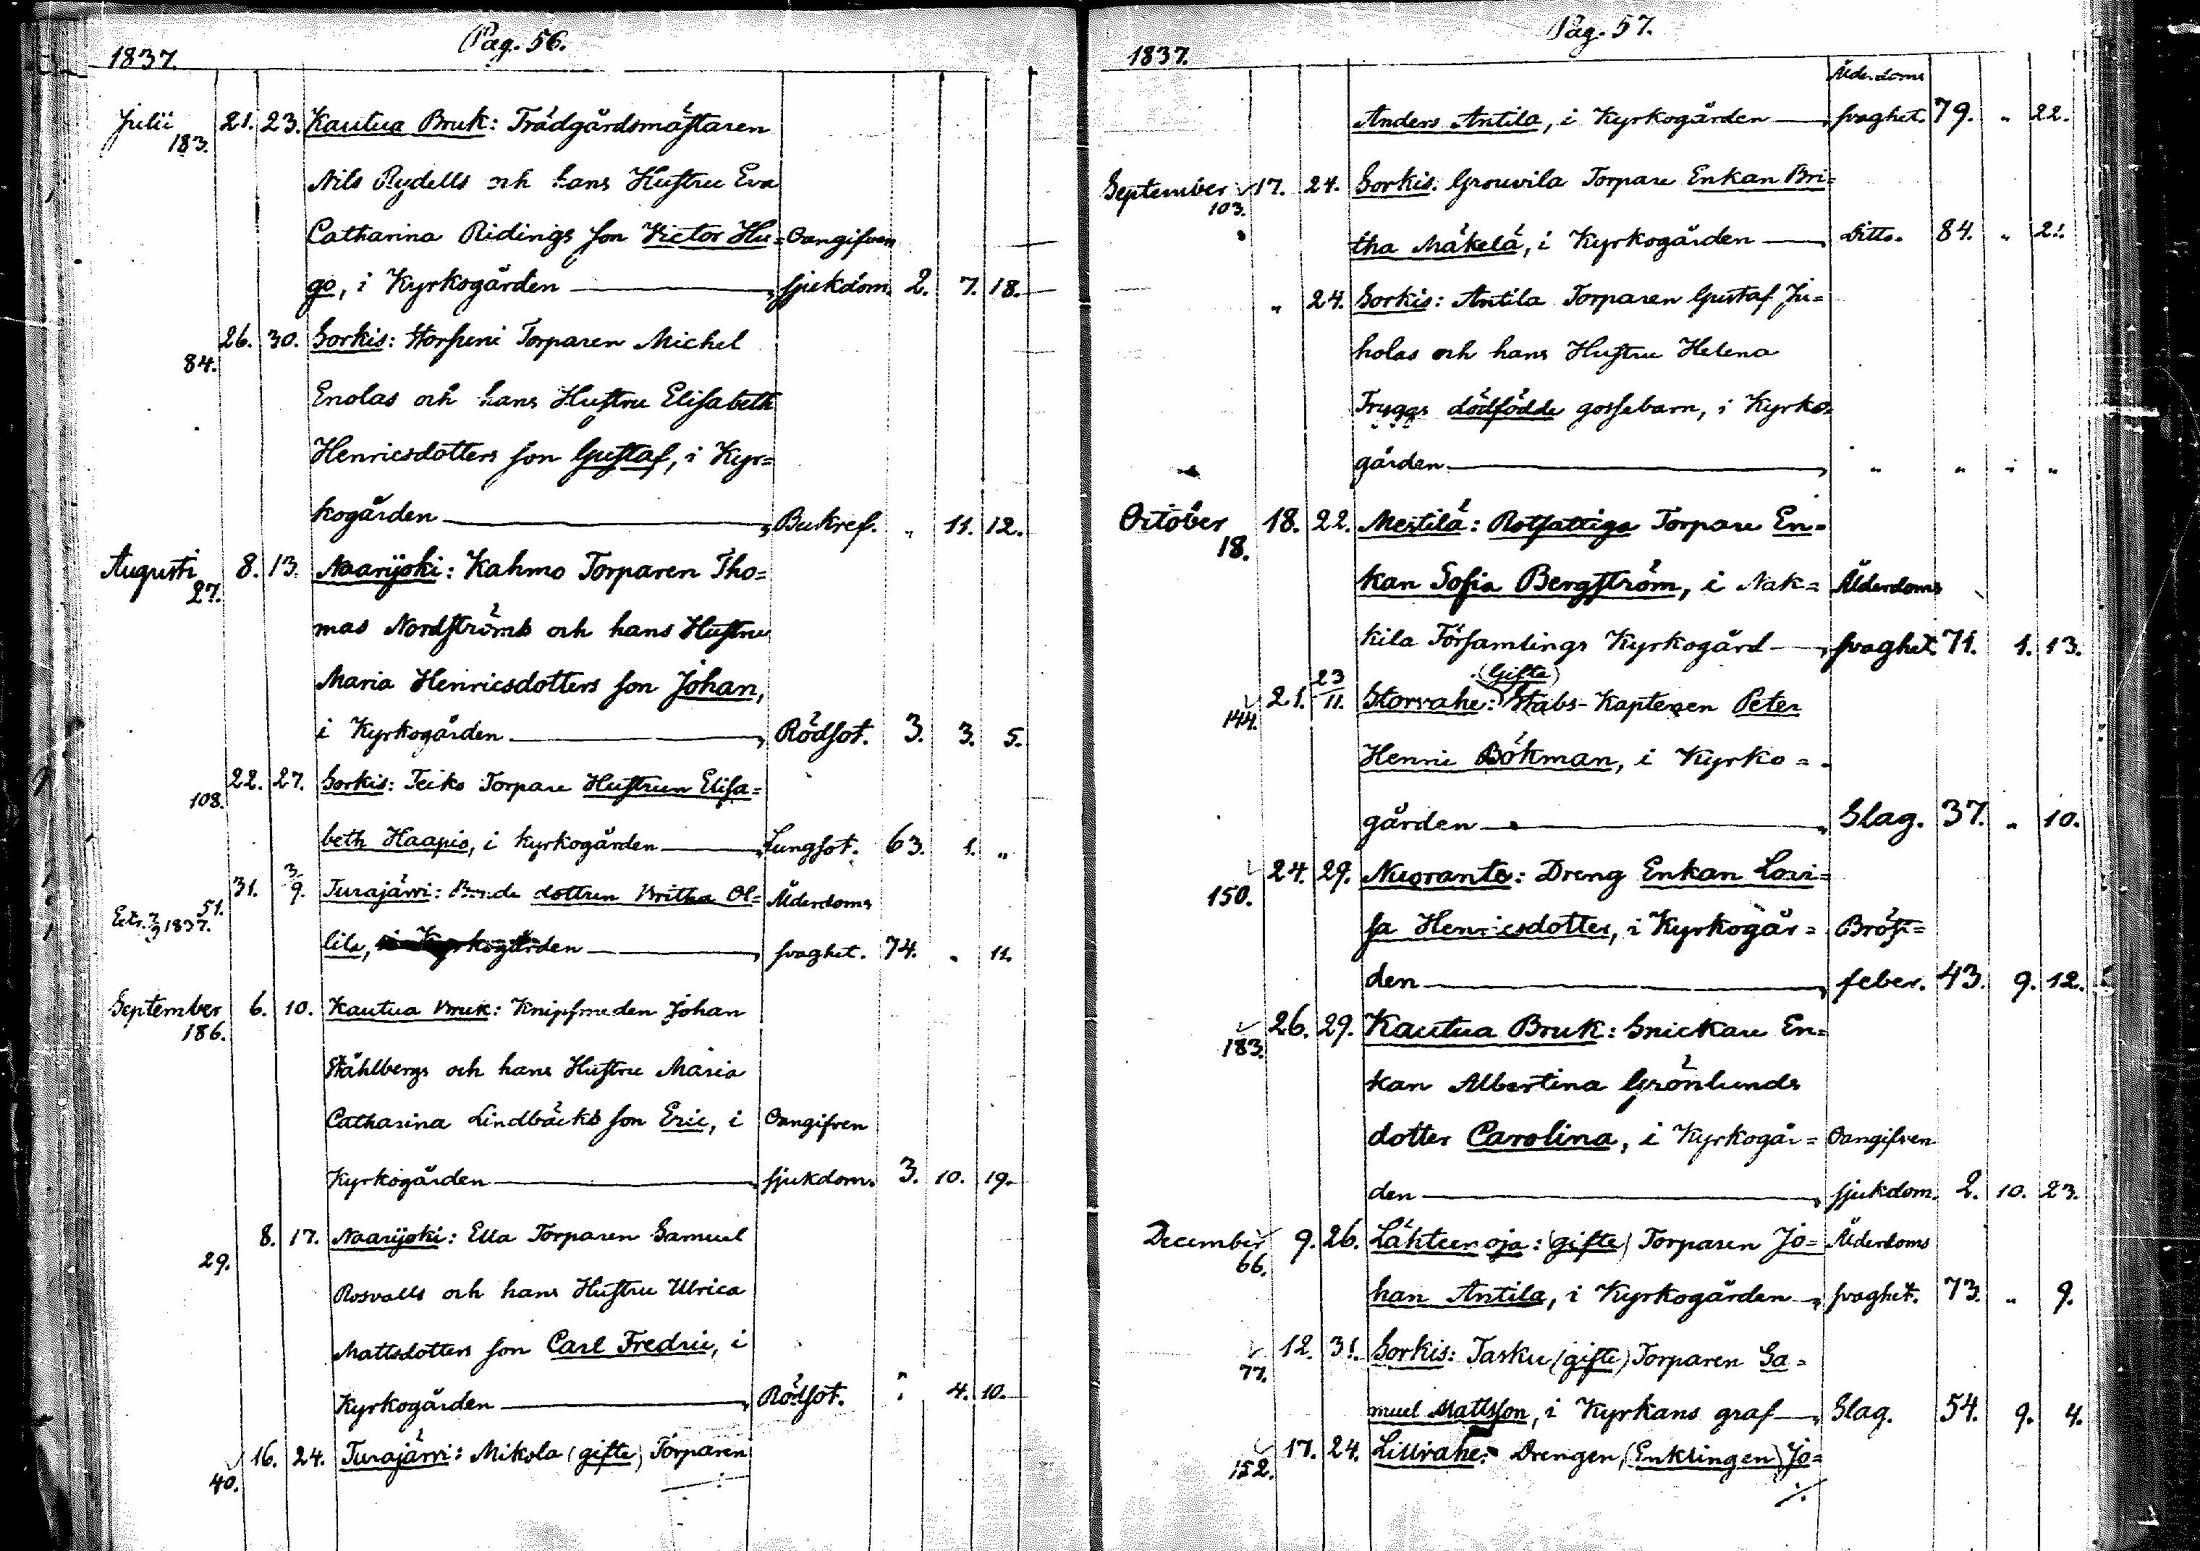 Pag. 56.
1837.
Julii 21. 23. Kautua Bruk: Trädgårdsmästaren
183.
Nils Rydells och hans Hustru Eva
Catharina Ridings son Victor Hu= Oangifven
go, i Kyrkogården sjukdom. 2. 7. 18.
26. 30. Sorkis: Torparen Michel
84.
Enolas och hans Hustru Elisabeth
Henricsdotters son Gustaf, i Kyr=
kogården Bukref. „ 11. 12.
Augusti 8. 13. Naarijoki: Kahmo Torparen Tho=
27.
mas Nordströms och hans Hustru
Maria Henricsdotters son Johan,
i Kyrkogården Rödsot. 3. 3. 5.
22. 27. Sorkis: Teiko Torpare Hustrun Elisa=
108.
beth Haapio, i kyrkogården Lungsot. 63. 1. „
31. 3/9. Turajärvi: Bonde dottren Britha Ol= Ålderdoms
51.
1837.
lila, i Kyrkogården svaghet. 74. „ 11.
September 6. 10. Kautua Bruk: Knipsmeden Johan
186.
Ståhlbergs och hans Hustru Maria
Catharina Lindbäcks son Eric, i Oangifven
Kyrkogården sjukdom. 3. 10. 19.
8. 17. Naarijoki: Ella Torparen Samuel
29.
Rosvalls och hans Hustru Ulrica
Mattsdotters son Carl Fredric, i
Kyrkogården Rödsot. „ 4. 10.
16. 24. Turajärvi: Mikola (gifte) Torparen
40.
Pag. 57.
1837.
Ålderdoms
Anders Antila, i Kyrkogården svaghet. 79. „ 22.
September 17. 24. Sorkis: Grouvila Torpare Enkan Bri=
103.
tha Mäkelä, i Kyrkogården Ditto. 84. „ 21.
„ 24. Sorkis: Antila Torparen Gustaf Ju=
holas och hans Hustru Helena
Tryggs dödfödde gossebarn, i Kyrko=
gården „ „ „ „
October 18. 22. Mestilä: Rotfattiga Torpare En=
18.
kan Sofia Bergström, i Nak= Ålderdoms
kila Församlings Kyrkogård svaghet. 71. 1. 13.
(Gifte)
21. 23/11. Storvahe: Stabs-Kaptenen Peter
144.
Henric Bökman, i Kyrko=
gården Slag. 37. „ 10.
24. 29. Nuoranta: Dreng Enkan Lovi=
150.
sa Henricsdotter, i Kyrkogår= Bröst=
den feber. 43. 9. 12.
26. 29. Kautua Bruk: Snickare En=
183.
kan Albertina Grönlunds
dotter Carolina, i Kyrkogår= Oangifven
den sjukdom. 2. 10. 23.
December 9. 26. Lähteenoja: (gifte) Torparen Jo= Ålderdoms
66.
han Antila, i Kyrkogården svaghet. 73. „ 9.
12. 31. Sorkis: Tasku (gifte) Torparen Sa=
77.
muel Mattsson, i Kyrkans graf Slag. 54. 9. 4.
17. 24. Lillvahe: Drengen (Enklingen) Jo=
152.